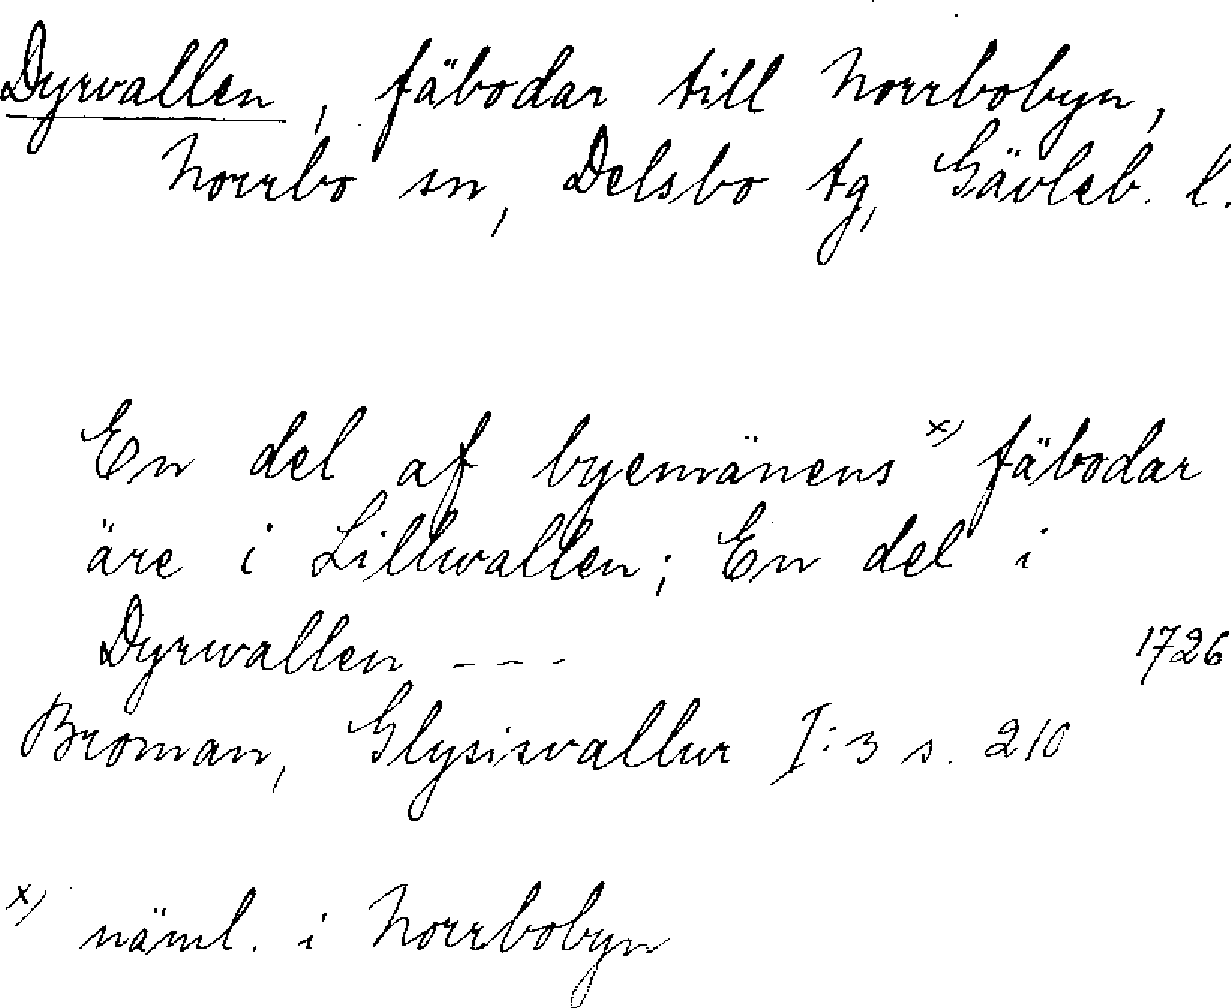 Dyrvallen, fäbodar till Norrbobyn,
Norrbo sn, Delsbo tg, Gävleb. l.
En del af byemänens x) fäbodar
äre i Lillwallen; En del i
Dyrwallen - - - 1726
Broman, Glysisvallur I:3 s. 210
x) näml. i Norrbobyn